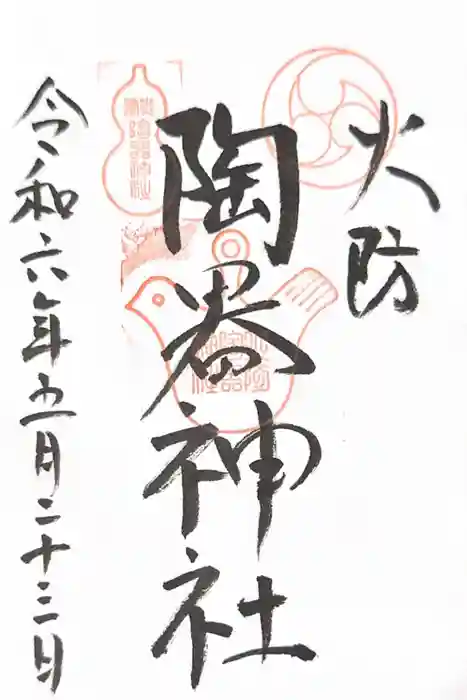 火防
陶器神社
令和六年五月二十三日